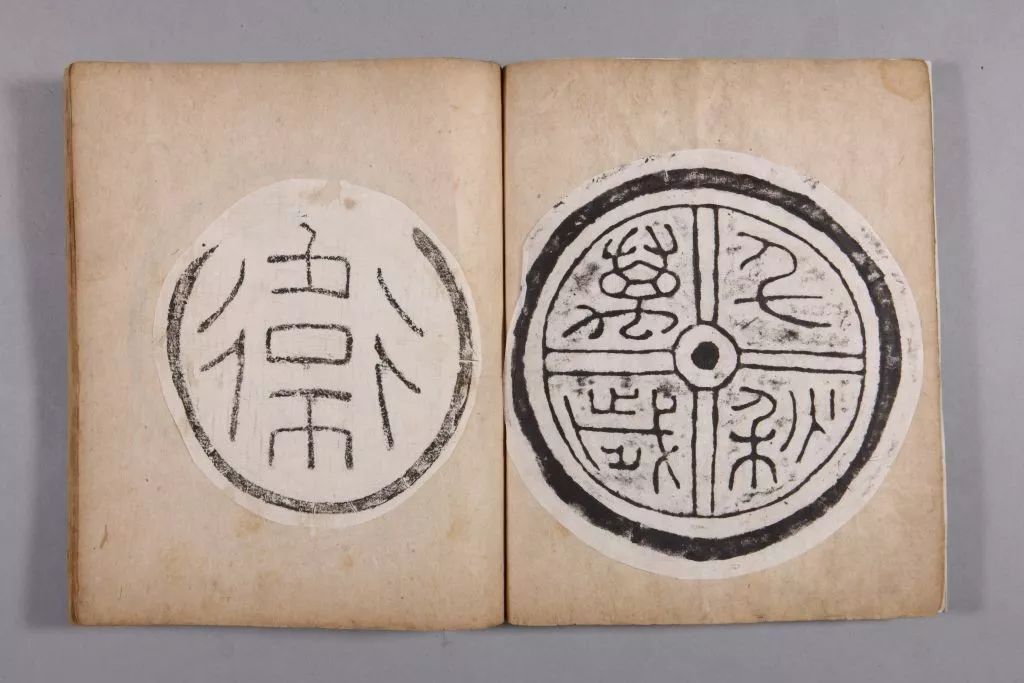 千秋
萬歲
衞